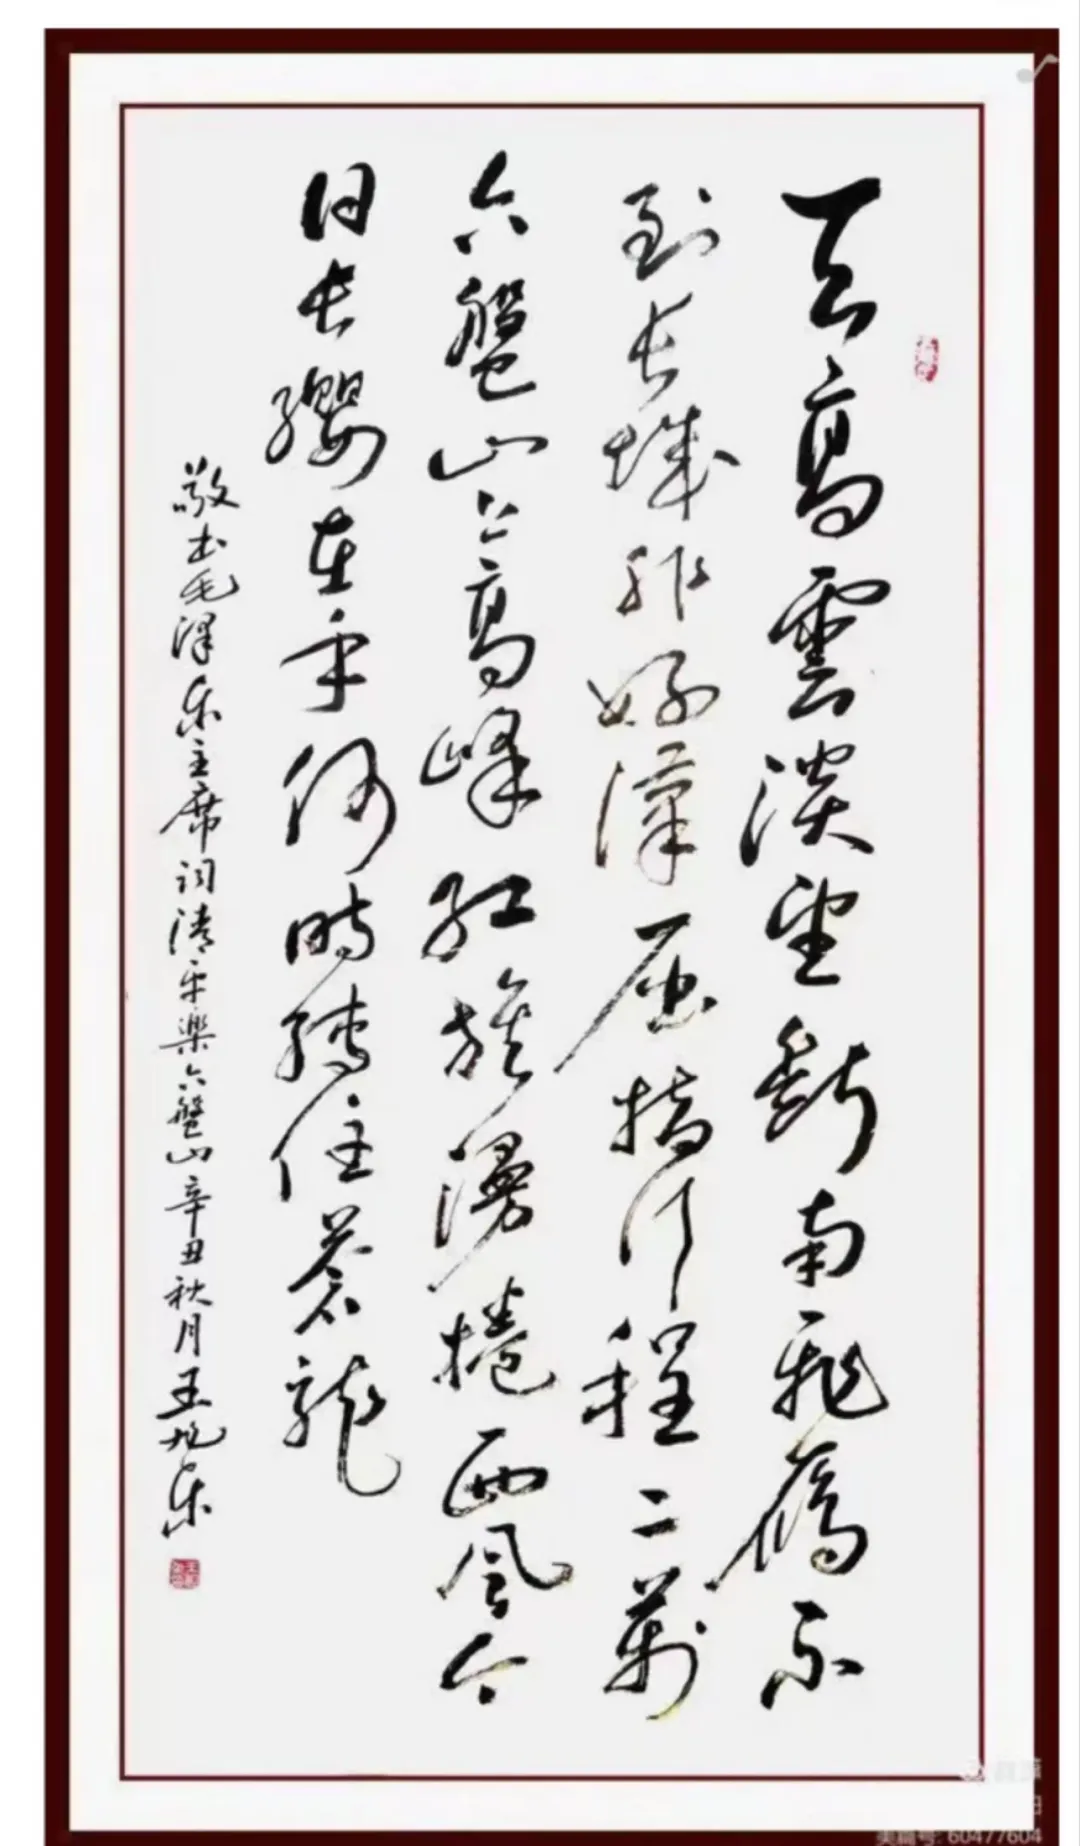 天高雲淡望斷南飛雁不
到長城非好漢屈指行程二萬
六盤山上高峰紅旗漫捲西風今
日長纓在手何時縛住蒼龍
敬书毛泽东主席词清平樂六盤山辛丑秋月王旭东
美篇号: 60477604